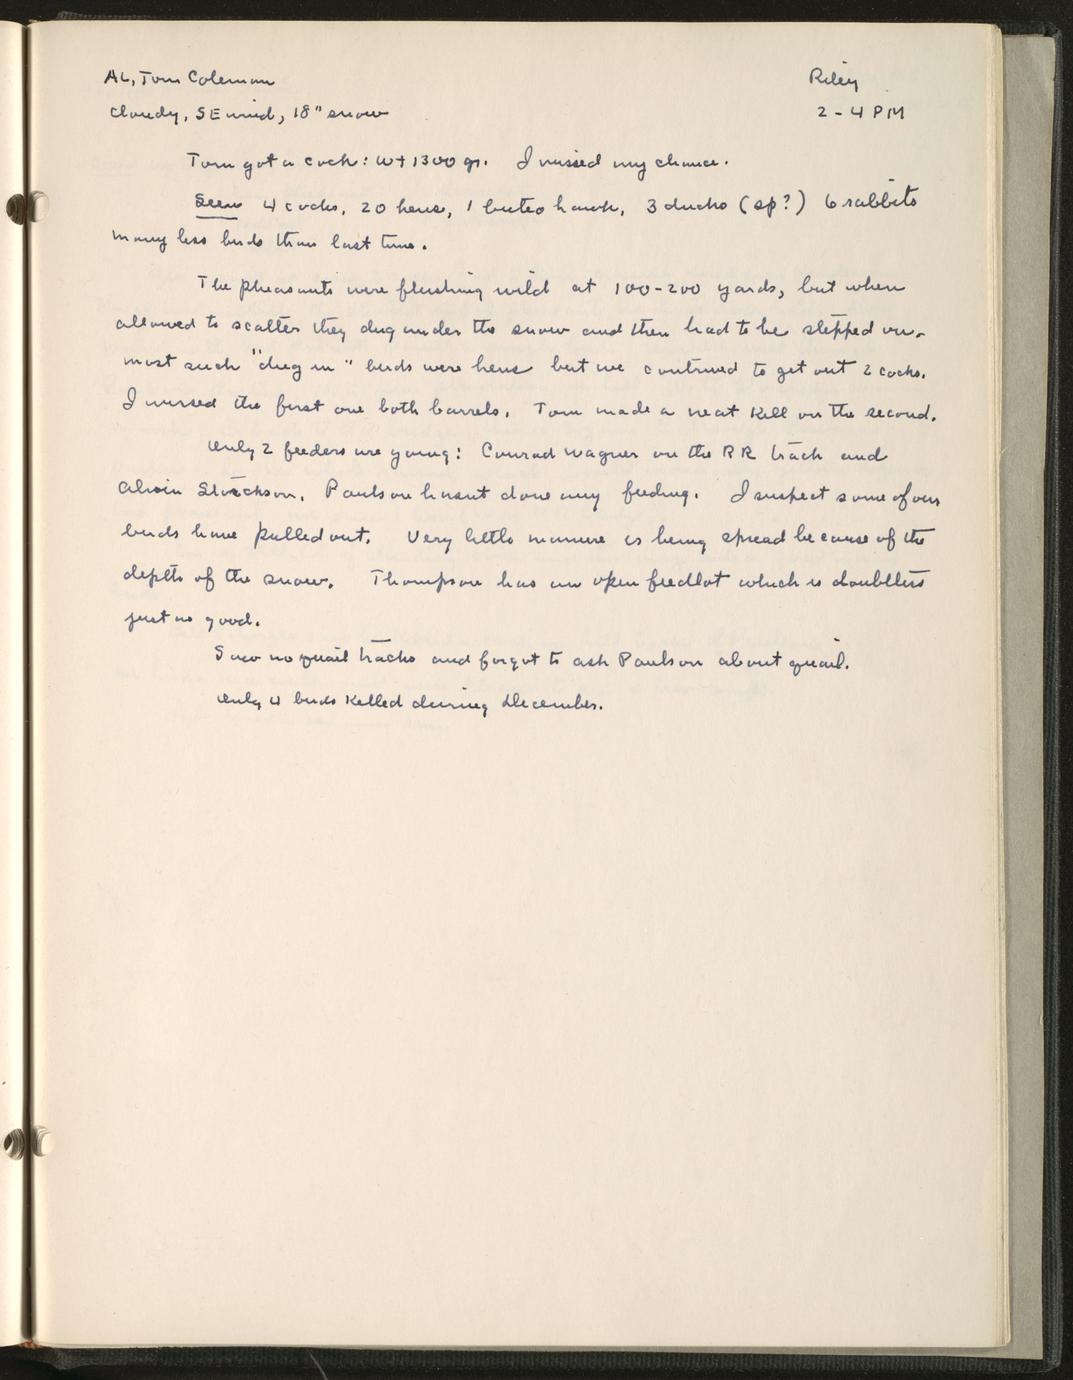 AL, Tom Coleman Riley
Cloudy, SE wind, 18" snow 2-4 PM
Tom got a cock: wt 1300 gr. I missed my chance.
Seen 4 cocks, 20 hens, 1 buteo hawk, 3 ducks (sp?) 6 rabbits
many less birds than last time.
The pheasants were flushing wild at 100-200 yards, but when
allowed to scatter they dug under the snow and then had to be stepped on.
most such "dug in" birds were hens but we contrived to get out 2 cocks.
I missed the first one both barrels. Tom made a neat kill on the second.
Only 2 feeders are going: Conrad Wagner on the RR track and
Alvin. Paulson hasnt done any feeding. I suspect some of our
birds have pulled out. Very little manure is being spread because of the
depth of the snow. Thompson has an open feedlot which is doubtless
just as good.
Saw no quail tracks and forgot to ask Paulson about quail.
Only 4 birds killed during December.